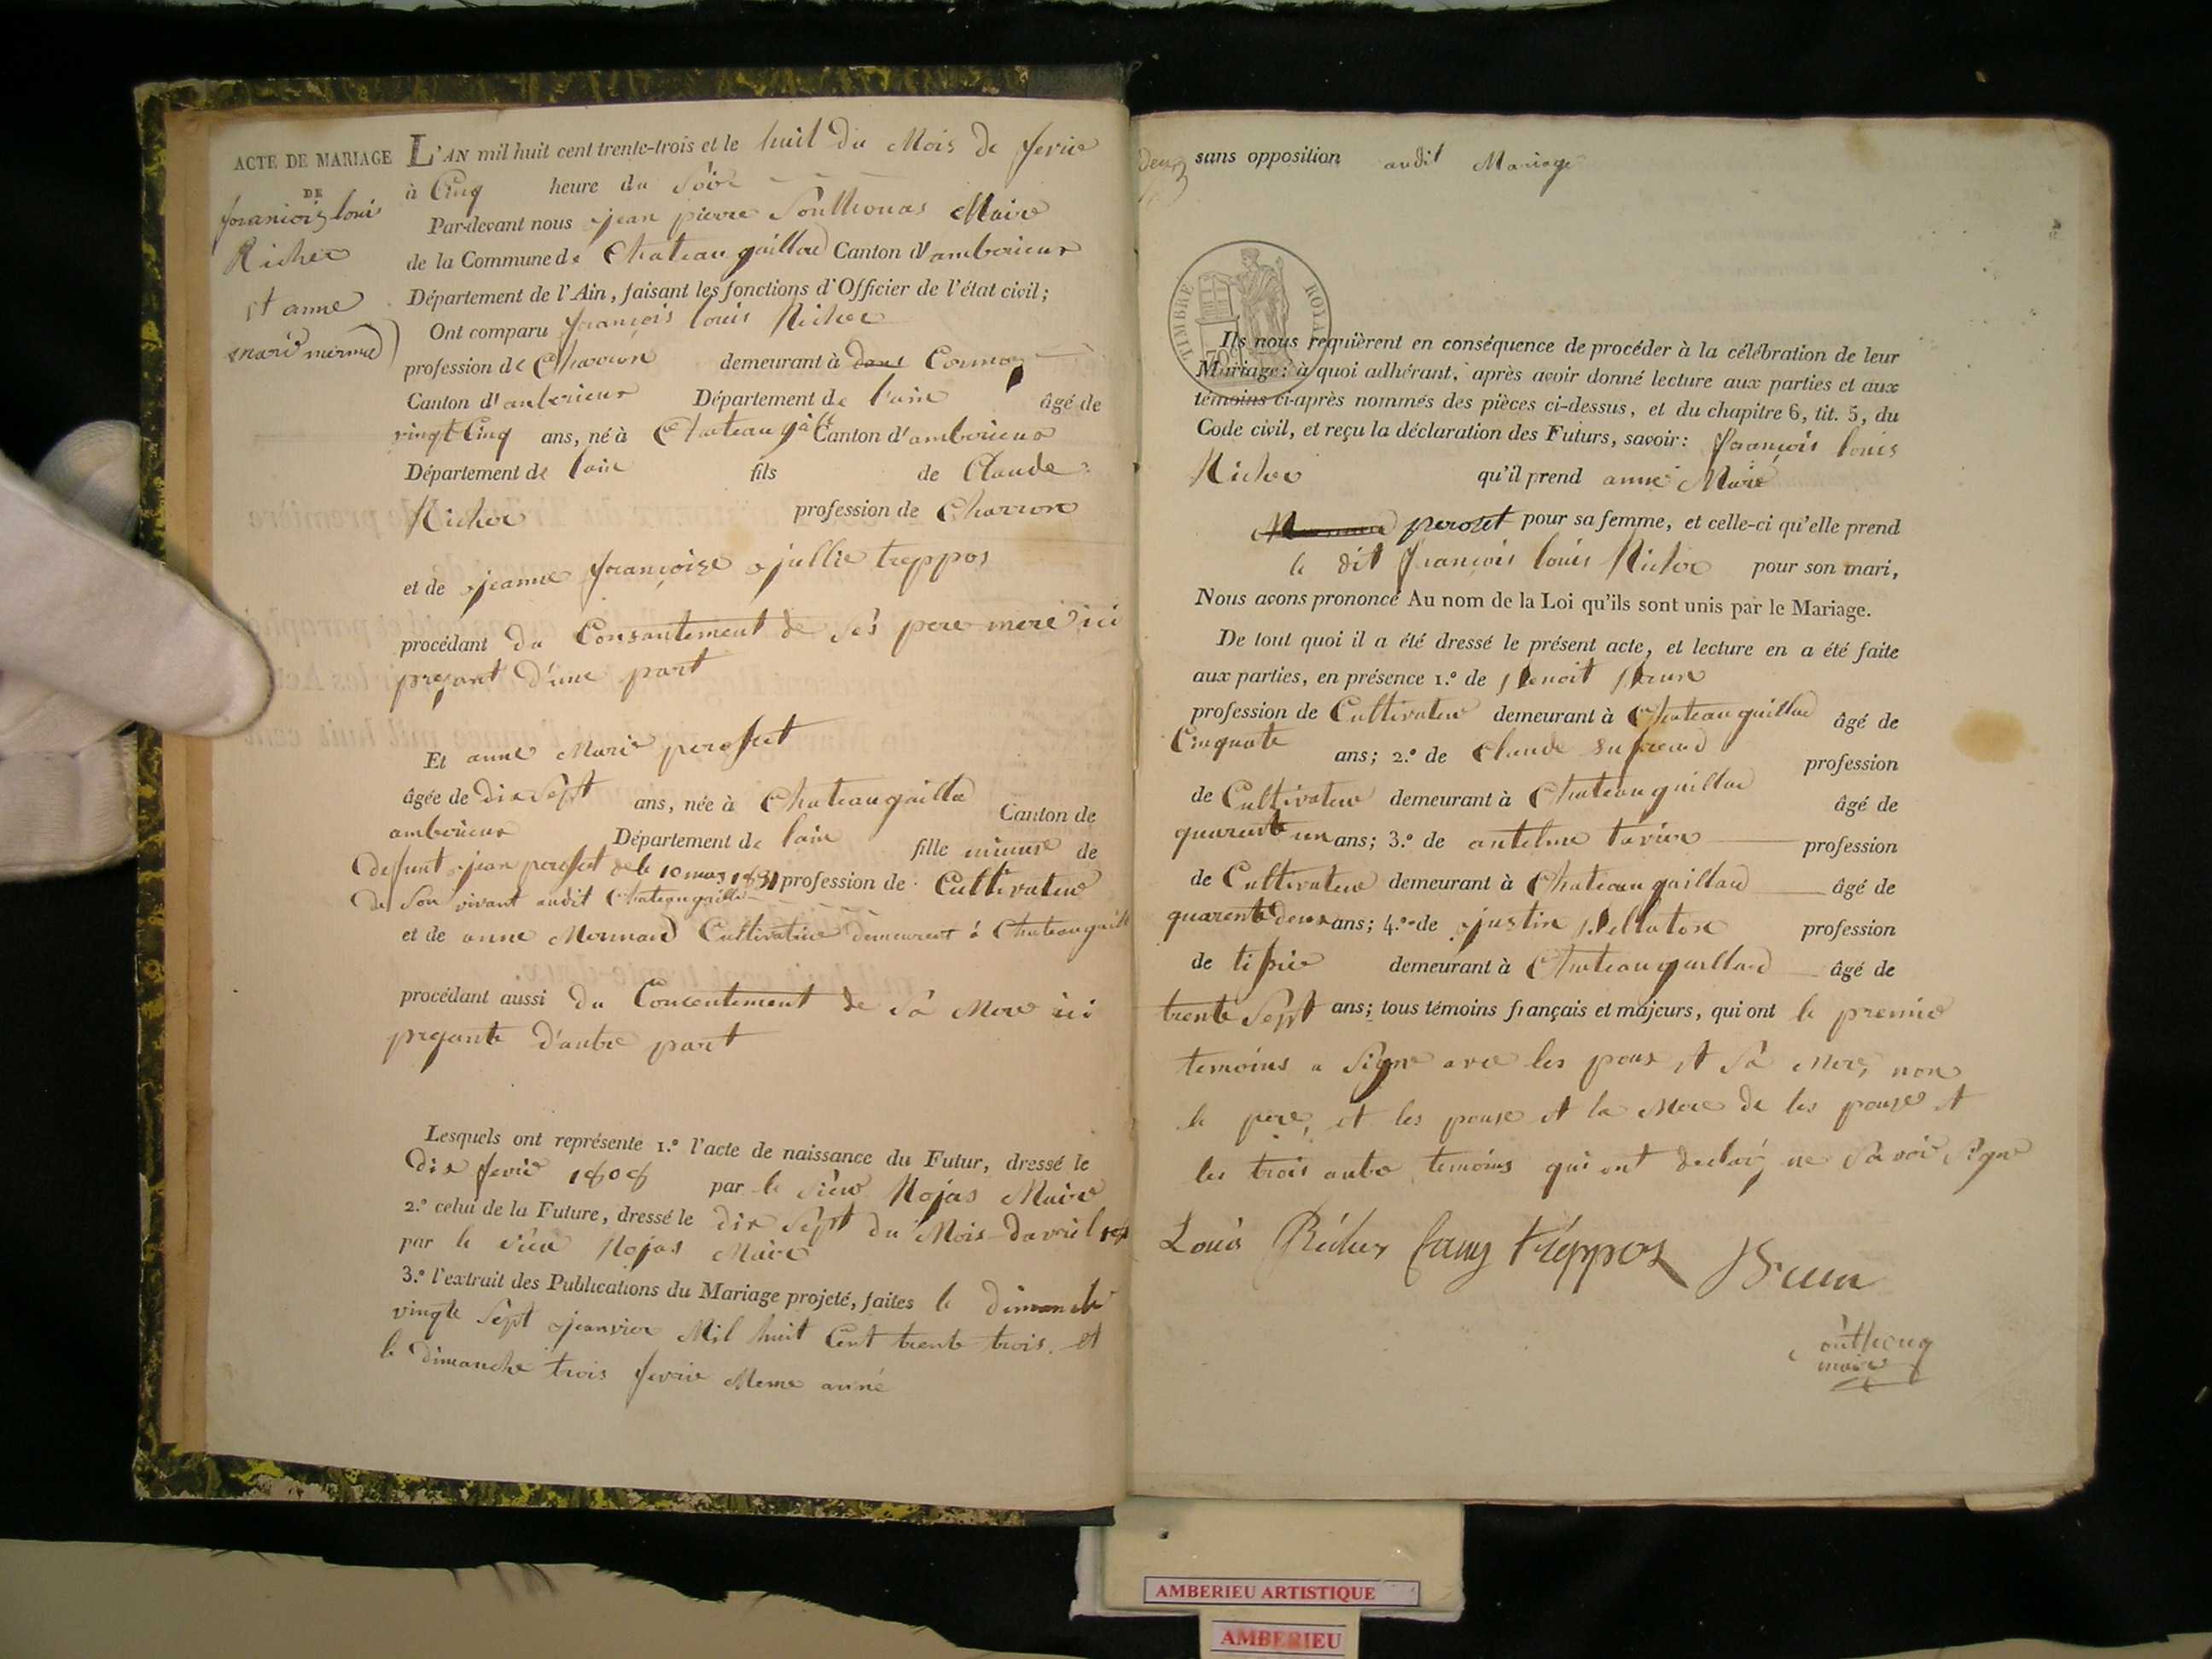 ACTE DE MARIAGE
DE
franiois loui
Richer
et anne
marie mermed
L'AN mil huit cent trente-trois et le huit du Mois de fevrie
à Cinq heure du Soir
Par-devant nous jean pierre Southonas Maire
de la Commune de Chateau gaillard Canton d'amberieux
Département de l'Ain, faisant les fonctions d'Officier de l'état civil;
Ont comparu françois louis Richer
profession de Charron demeurant à dans
Canton d'amberieux Département de l'ain âgé de
vingt Cinq ans, né à Chateau gail Canton d'amberieux
Département de lain fils de Claude
Richer profession de Charron
et de jeanne françoise jullie treppos
procédant du Consantement de Ses pere mere ici
present d'une part
Et anne Marie
âgée de dix Sept ans, née à Chateaugailla Canton de
amberieux Département de lain fille mineure de
Defunt jean 10 mars 1831 profession de Cultivateur
de Son vivant audit Chateaugailla
et de anne Mermand Cultivatrice demeurent à Chateaugaill
procédant aussi du Concentement de Sa Mere ici
presante d'autre part
Lesquels ont représente 1.° l'acte de naissance du Futur, dressé le
dix fevrie 1808 par le Sieur Nojas Maire
2.° celui de la Future, dressé le dix Sept du Mois davril
par le Sieur Nojas Maire
3.° l'extrait des Publications du Mariage projeté, faites le dimanche
vingte Sept jeanvier Mil huit Cent trente trois et
le dimanche trois fevrie Meme année
sans opposition audit Mariage
TIMBRE ROYAL
70
Ils nous requièrent en conséquence de procéder à la célébration de leur
Mariage: à quoi adhérant, après avoir donné lecture aux parties et aux
témoins ci-après nommés des pièces ci-dessus, et du chapitre 6, tit. 5, du
Code civil, et reçu la déclaration des Futurs, savoir: françois louis
Richer qu'il prend anne Marie
peroset pour sa femme, et celle-ci qu'elle prend
le dit françois louis Richer pour son mari,
Nous avons prononcé Au nom de la Loi qu'ils sont unis par le Mariage.
De tout quoi il a été dressé le présent acte, et lecture en a été faite
aux parties, en présence 1.° de Benoit Brun
profession de Cultivateur demeurant à Chateau gaillad âgé de
Cinquate ans; 2.° de Claude profession
de Cultivateur demeurant à Chateau gaillad âgé de
quarante un ans; 3.° de antelme tavier profession
de Cultivateur demeurant à Chateau gaillard âgé de
quarente deux ans; 4.° de justin Pellaton profession
de tisier demeurant à Chateau gaillard âgé de
trente Sept ans; tous témoins français et majeurs, qui ont le premie
temoins a Signe avec les poux et Sa Mere, non
le pere, et les pouse et la Mere de les pouse et
les trois autre temoins qui ont declaré ne Savoir Signe
Louis Richer fany tréppoz Brun
outhonas
maire
AMBERIEU ARTISTIQUE
AMBERIEU